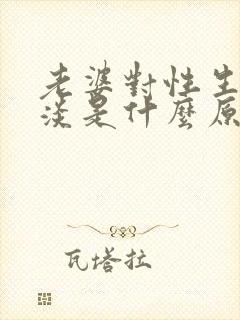 老婆對性生
淡是什麼原
瓦塔拉